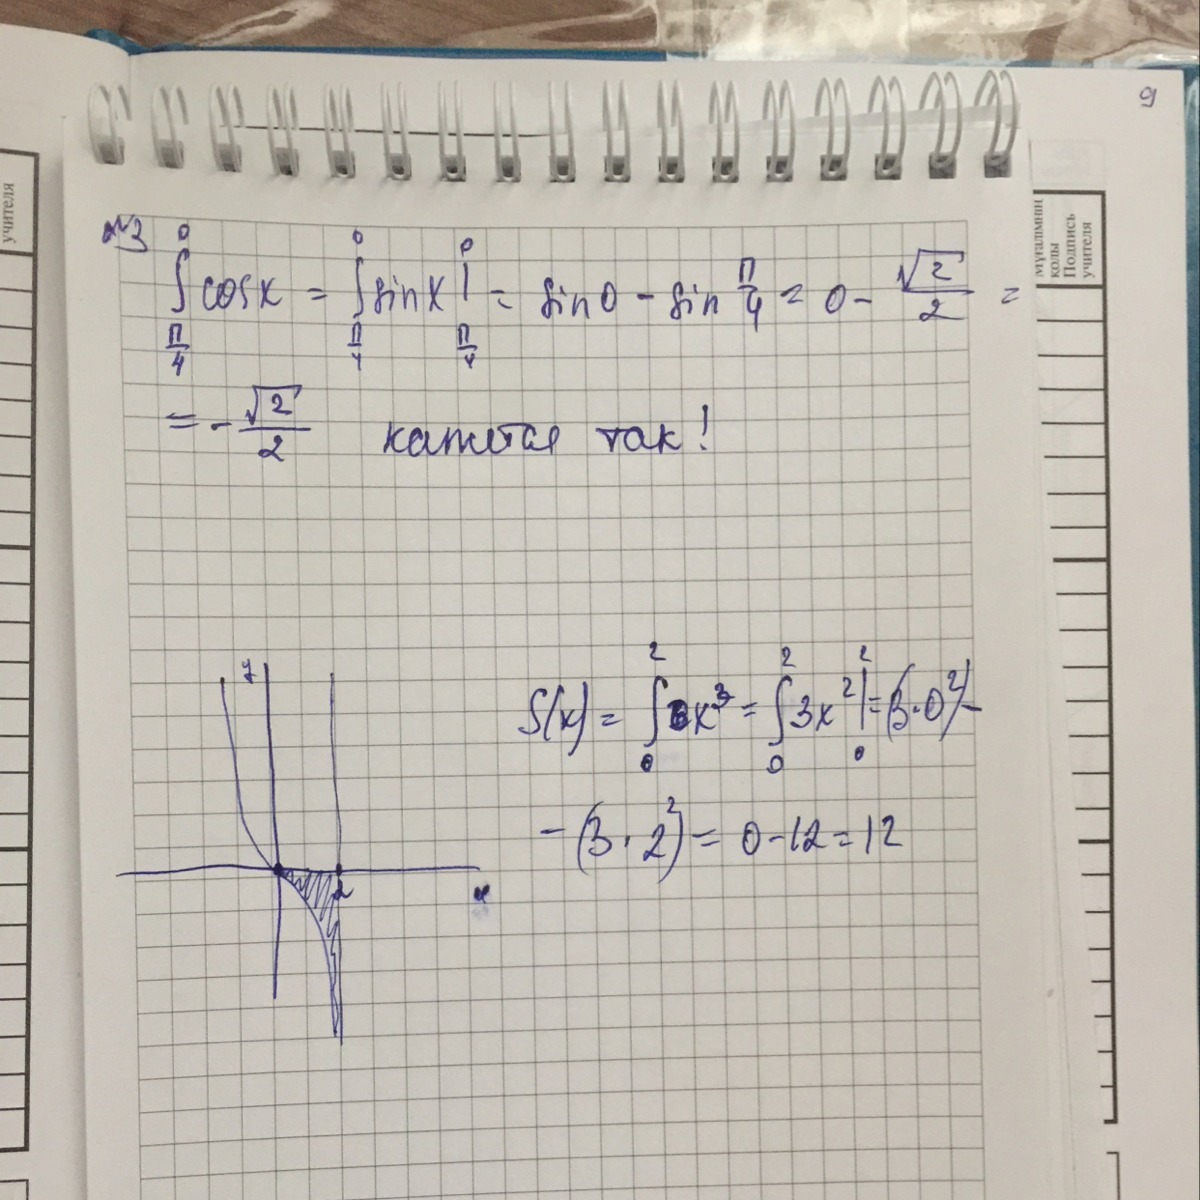 9
учителя
Мұғалімнің
қолы
Подпись
учителя
№3
∫_{π/4}^{0} cosx = ∫_{π/4}^{0} sinx |_{π/4}^{0} = sin0 - sin π/4 = 0 - √2/2 =
= - √2/2 кажется так!
y
S(x) = ∫_{0}^{2} x³ = ∫_{0}^{2} 3x² |_{0}^{2} = (3·0²) -
- (3·2²) = 0 - 12 = 12
2
x